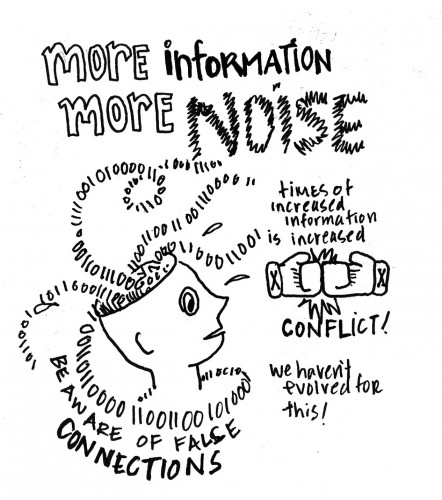 MORE INFORMATION
MORE NOISE
TIMES OF
INCREASED
INFORMATION
IS INCREASED
CONFLICT!
WE HAVEN'T
EVOLVED FOR
THIS!
BE AWARE OF FALSE
CONNECTIONS